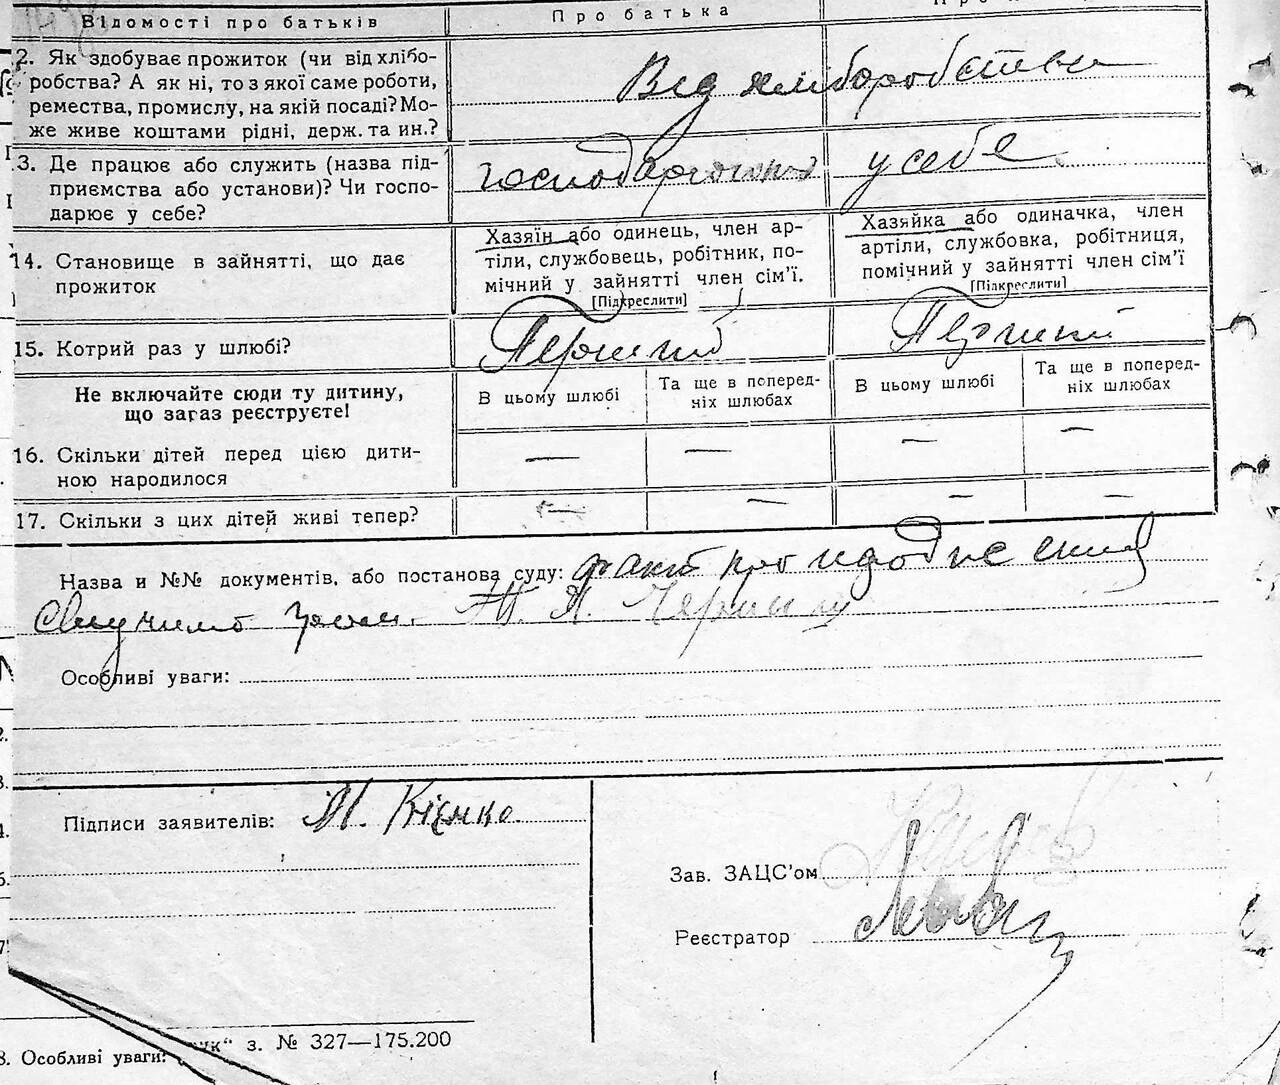 Відомості про батьків
Про батька
2. Як здобуває прожиток (чи від хлібо-
робства? А як ні, то з якої саме роботи,
ремества, промислу, на якій посаді? Мо-
же живе коштами рідні, держ. та ин.?
Від хліборобства
3. Де працює або служить (назва під-
приємства або установи)? Чи госпо-
дарює у себе?
у себе
14. Становище в зайнятті, що дає
прожиток
Хазяїн або одинець, член ар-
тіли, службовець, робітник, по-
мічний у зайнятті член сім'ї.
[Підкреслити]
Хазяйка або одиначка, член
артіли, службовка, робітниця,
помічний у зайнятті член сім'ї
[Підкреслити]
15. Котрий раз у шлюбі?
Перший
Перший
Не включайте сюди ту дитину,
що загаз реєструєте!
В цьому шлюбі
Та ще в поперед-
ніх шлюбах
В цьому шлюбі
Та ще в поперед-
ніх шлюбах
16. Скільки дітей перед цією дити-
ною народилося
— — — —
17. Скільки з цих дітей живі тепер?
— — — —
Назва и №№ документів, або постанова суду: факт про
Особливі уваги:
Підписи заявителів: М. Кієнко
Зав. ЗАЦС'ом
Реєстратор
ук" з. № 327—175.200
8. Особливі уваги: